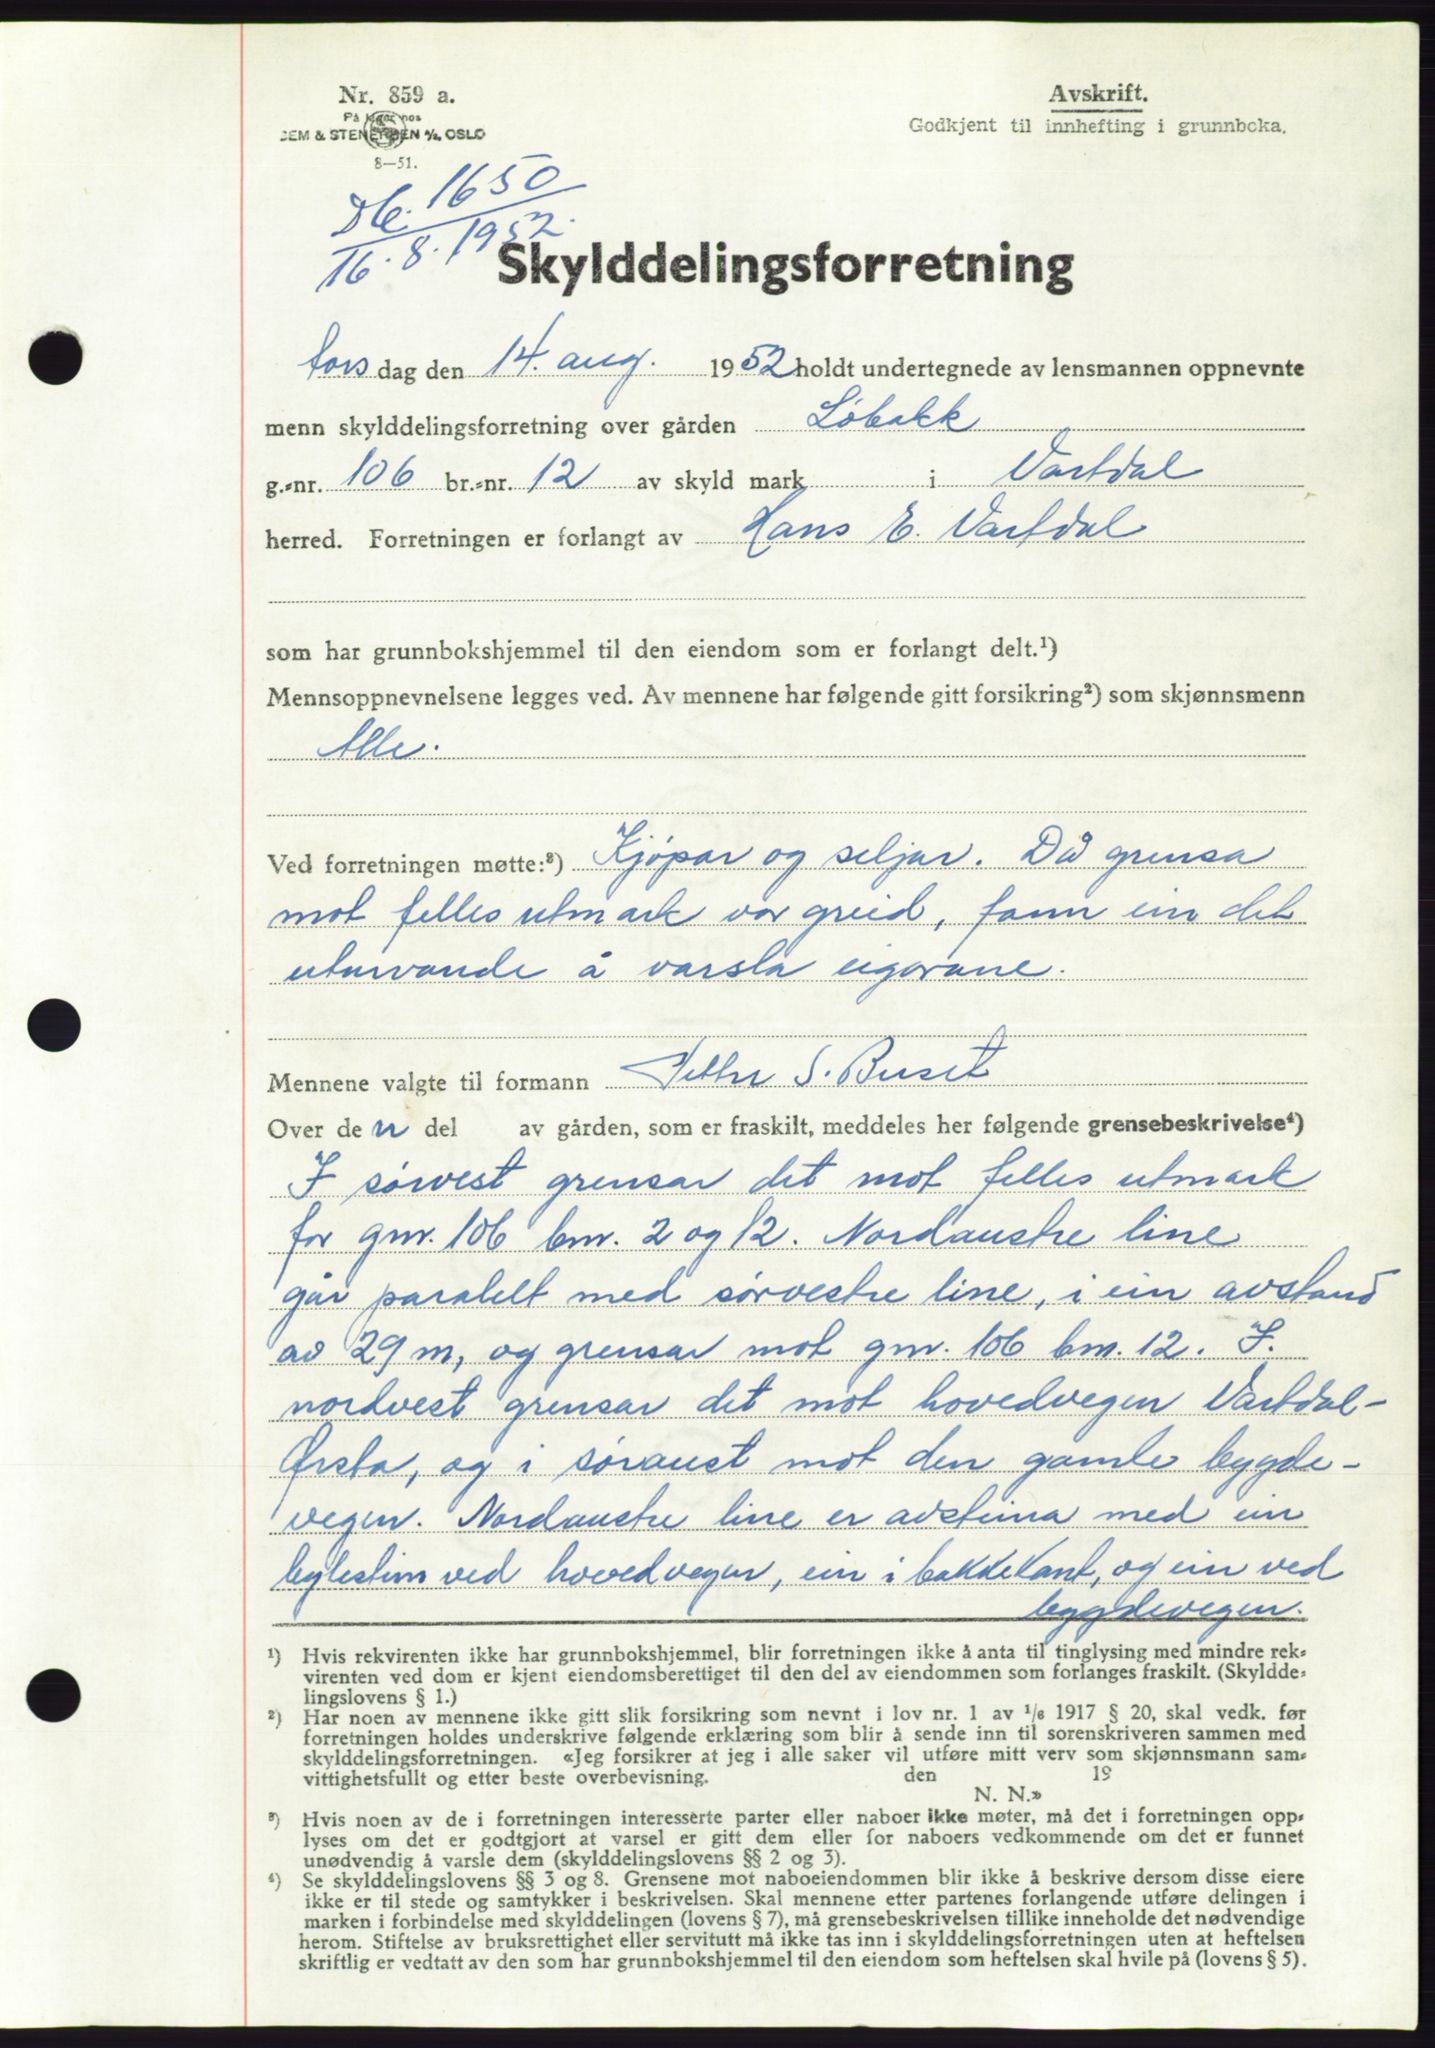 Nr. 859 a.
På lager hos
SEM & STENERSEN A/S, OSLO
8—51.
Avskrift.
Godkjent til innhefting i grunnboka.
Db. 1650
16.8.1952.
Skylddelingsforretning
tors dag den 14. aug. 1952 holdt undertegnede av lensmannen oppnevnte
menn skylddelingsforretning over gården Løbakk
g.-nr. 106 br.-nr. 12 av skyld mark i Vartdal
herred. Forretningen er forlangt av Hans E. Vartdal
som har grunnbokshjemmel til den eiendom som er forlangt delt.¹)
Mennsoppnevnelsene legges ved. Av mennene har følgende gitt forsikring²) som skjønnsmenn
Alle.
Ved forretningen møtte:³) Kjøpar og seljar. Då grensa
mot felles utmark var greid, fann ein det
uturvande å varsla eigarane.
Mennene valgte til formann Petter S. Buset
Over den del av gården, som er fraskilt, meddeles her følgende grensebeskrivelse⁴)
I sørvest grensar det mot felles utmark
for gnr. 106 bnr. 2 og 12. Nordaustre line
går paralelt med sørvestre line, i ein avstand
av 29 m, og grensar mot gnr. 106 bnr. 12. I.
nordvest grensar det mot hovedvegen Vartdal-
Ørsta, og i søraust mot den gamle bygde-
vegen. Nordaustre line er avsteina med ein
bytestein ved hovedvegen, ein i bakkekant, og ein ved
bygdevegen.
¹) Hvis rekvirenten ikke har grunnbokshjemmel, blir forretningen ikke å anta til tinglysing med mindre rek-
virenten ved dom er kjent eiendomsberettiget til den del av eiendommen som forlanges fraskilt. (Skyldde-
lingslovens § 1.)
²) Har noen av mennene ikke gitt slik forsikring som nevnt i lov nr. 1 av 1/6 1917 § 20, skal vedk. før
forretningen holdes underskrive følgende erklæring som blir å sende inn til sorenskriveren sammen med
skylddelingsforretningen. «Jeg forsikrer at jeg i alle saker vil utføre mitt verv som skjønnsmann sam-
vittighetsfullt og etter beste overbevisning. den 19
N. N.»
³) Hvis noen av de i forretningen interesserte parter eller naboer ikke møter, må det i forretningen opp-
lyses om det er godtgjort at varsel er gitt dem eller for naboers vedkommende om det er funnet
unødvendig å varsle dem (skylddelingslovens §§ 2 og 3).
⁴) Se skylddelingslovens §§ 3 og 8. Grensene mot naboeiendommen blir ikke å beskrive dersom disse eiere
ikke er til stede og samtykker i beskrivelsen. Skal mennene etter partenes forlangende utføre delingen i
marken i forbindelse med skylddelingen (lovens § 7), må grensebeskrivelsen tillike inneholde det nødvendige
herom. Stiftelse av bruksrettighet eller servitutt må ikke tas inn i skylddelingsforretningen uten at heftelsen
skriftlig er vedtatt av den som har grunnbokshjemmel til den eiendom som heftelsen skal hvile på (lovens § 5).